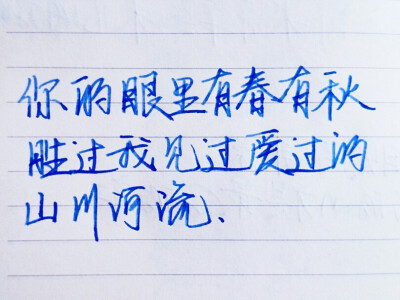 你的眼里有春有秋
胜过我见过爱过的
山川河流、